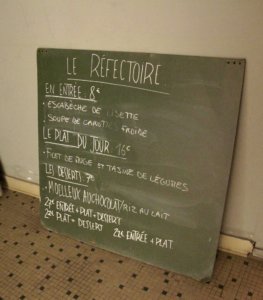 LE RÉFECTOIRE
EN ENTRÉE 8€
• ESCABÈCHE DE LISETTE
SOUPE DE CAROTTES FROIDE
LE PLAT DU JOUR 16€
• FILET DE ET TAJINE DE LÉGUMES
LES DESSERTS
• MOELLEUX AU CHOCOLAT/RIZ AU LAIT
ENTRÉE + PLAT + DESSERT
PLAT + DESSERT ENTRÉE + PLAT